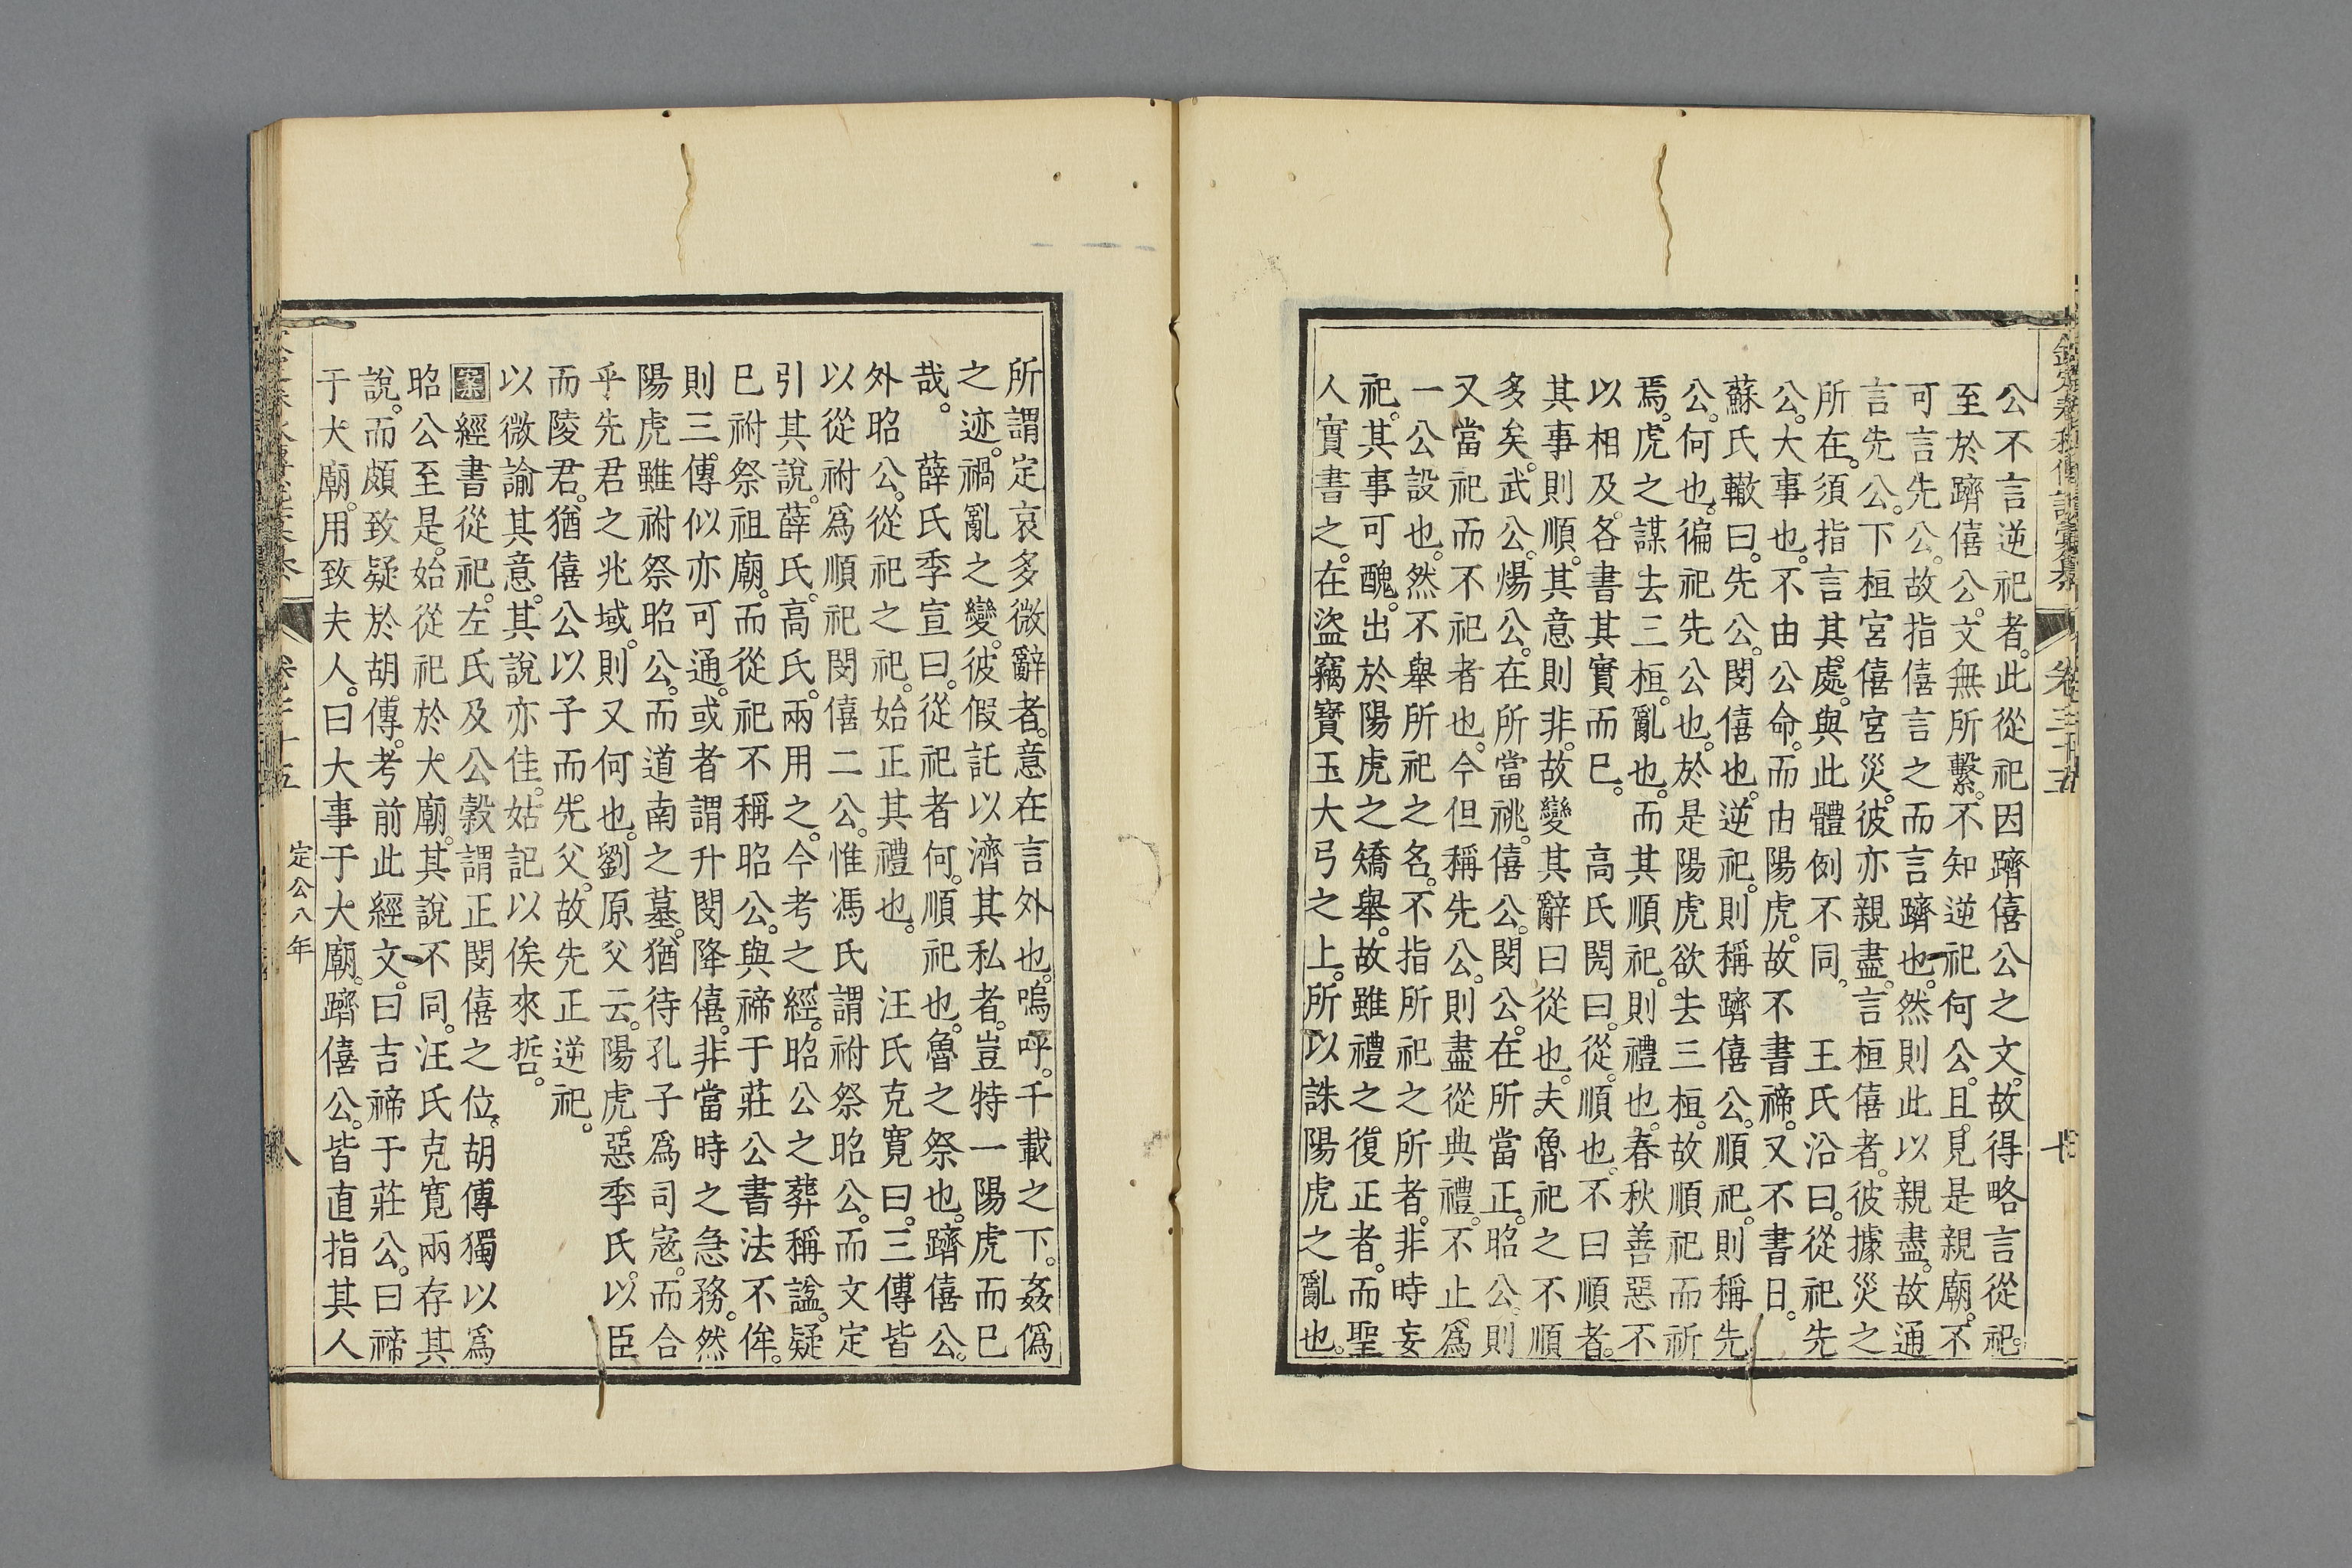 公不言逆祀者。此從祀因躋僖公之文。故得略言從祀。
至於躋僖公。文無所繫。不知逆祀何公。且見是親廟。不
可言先公。故指僖言之而言躋也。然則此以親盡。故通
言先公。下桓宮僖宮災。彼亦親盡。言桓僖者。彼據災之
所在。須指言其處。與此體例不同。　王氏沿曰。從祀先
公。大事也。不由公命。而由陽虎。故不書禘。又不書日。
蘇氏轍曰。先公。閔僖也。逆祀。則稱躋僖公。順祀。則稱先
公。何也。徧祀先公也。於是陽虎欲去三桓。故順祀而祈
焉。虎之謀去三桓。亂也。而其順祀。則禮也。春秋善惡不
以相及。各書其實而已。　高氏閌曰。從。順也。不曰順者。
其事則順。其意則非。故變其辭曰從也。夫魯祀之不順
多矣。武公。煬公。在所當祧。僖公。閔公。在所當正。昭公。則
又當祀而不祀者也。今但稱先公。則盡從典禮。不止爲
一公設也。然不舉所祀之名。不指所祀之所者。非時妄
祀。其事可醜。出於陽虎之矯舉。故雖禮之復正者。而聖
人實書之。在盜竊寶玉大弓之上。所以誅陽虎之亂也。
卷三十五
所謂定哀多微辭者。意在言外也。嗚呼。千載之下。姦僞
之迹。禍亂之變。彼假託以濟其私者。豈特一陽虎而已
哉。　薛氏季宣曰。從祀者何。順祀也。魯之祭也。躋僖公。
外昭公。從祀之祀。始正其禮也。　汪氏克寬曰。三傳皆
以從祔爲順祀閔僖二公。惟馮氏謂祔祭昭公。而文定
引其說。薛氏。高氏。兩用之。今考之經。昭公之葬稱諡。疑
已祔祭祖廟。而從祀不稱昭公。與禘于莊公書法不侔。
則三傳似亦可通。或者謂升閔降僖。非當時之急務。然
陽虎雖祔祭昭公。而道南之墓。猶待孔子爲司寇。而合
乎先君之兆域。則又何也。劉原父云。陽虎。惡季氏。以臣
而陵君。猶僖公以子而先父。故先正逆祀。
以微諭其意。其說亦佳。姑記以俟來哲。
案經書從祀。左氏及公穀謂正閔僖之位。胡傳獨以爲
昭公至是。始從祀於大廟。其說不同。汪氏克寬兩存其
說。而頗致疑於胡傳。考前此經文。曰吉禘于莊公。曰禘
于大廟。用致夫人。曰大事于大廟。躋僖公。皆直指其人
卷三十五　定公八年